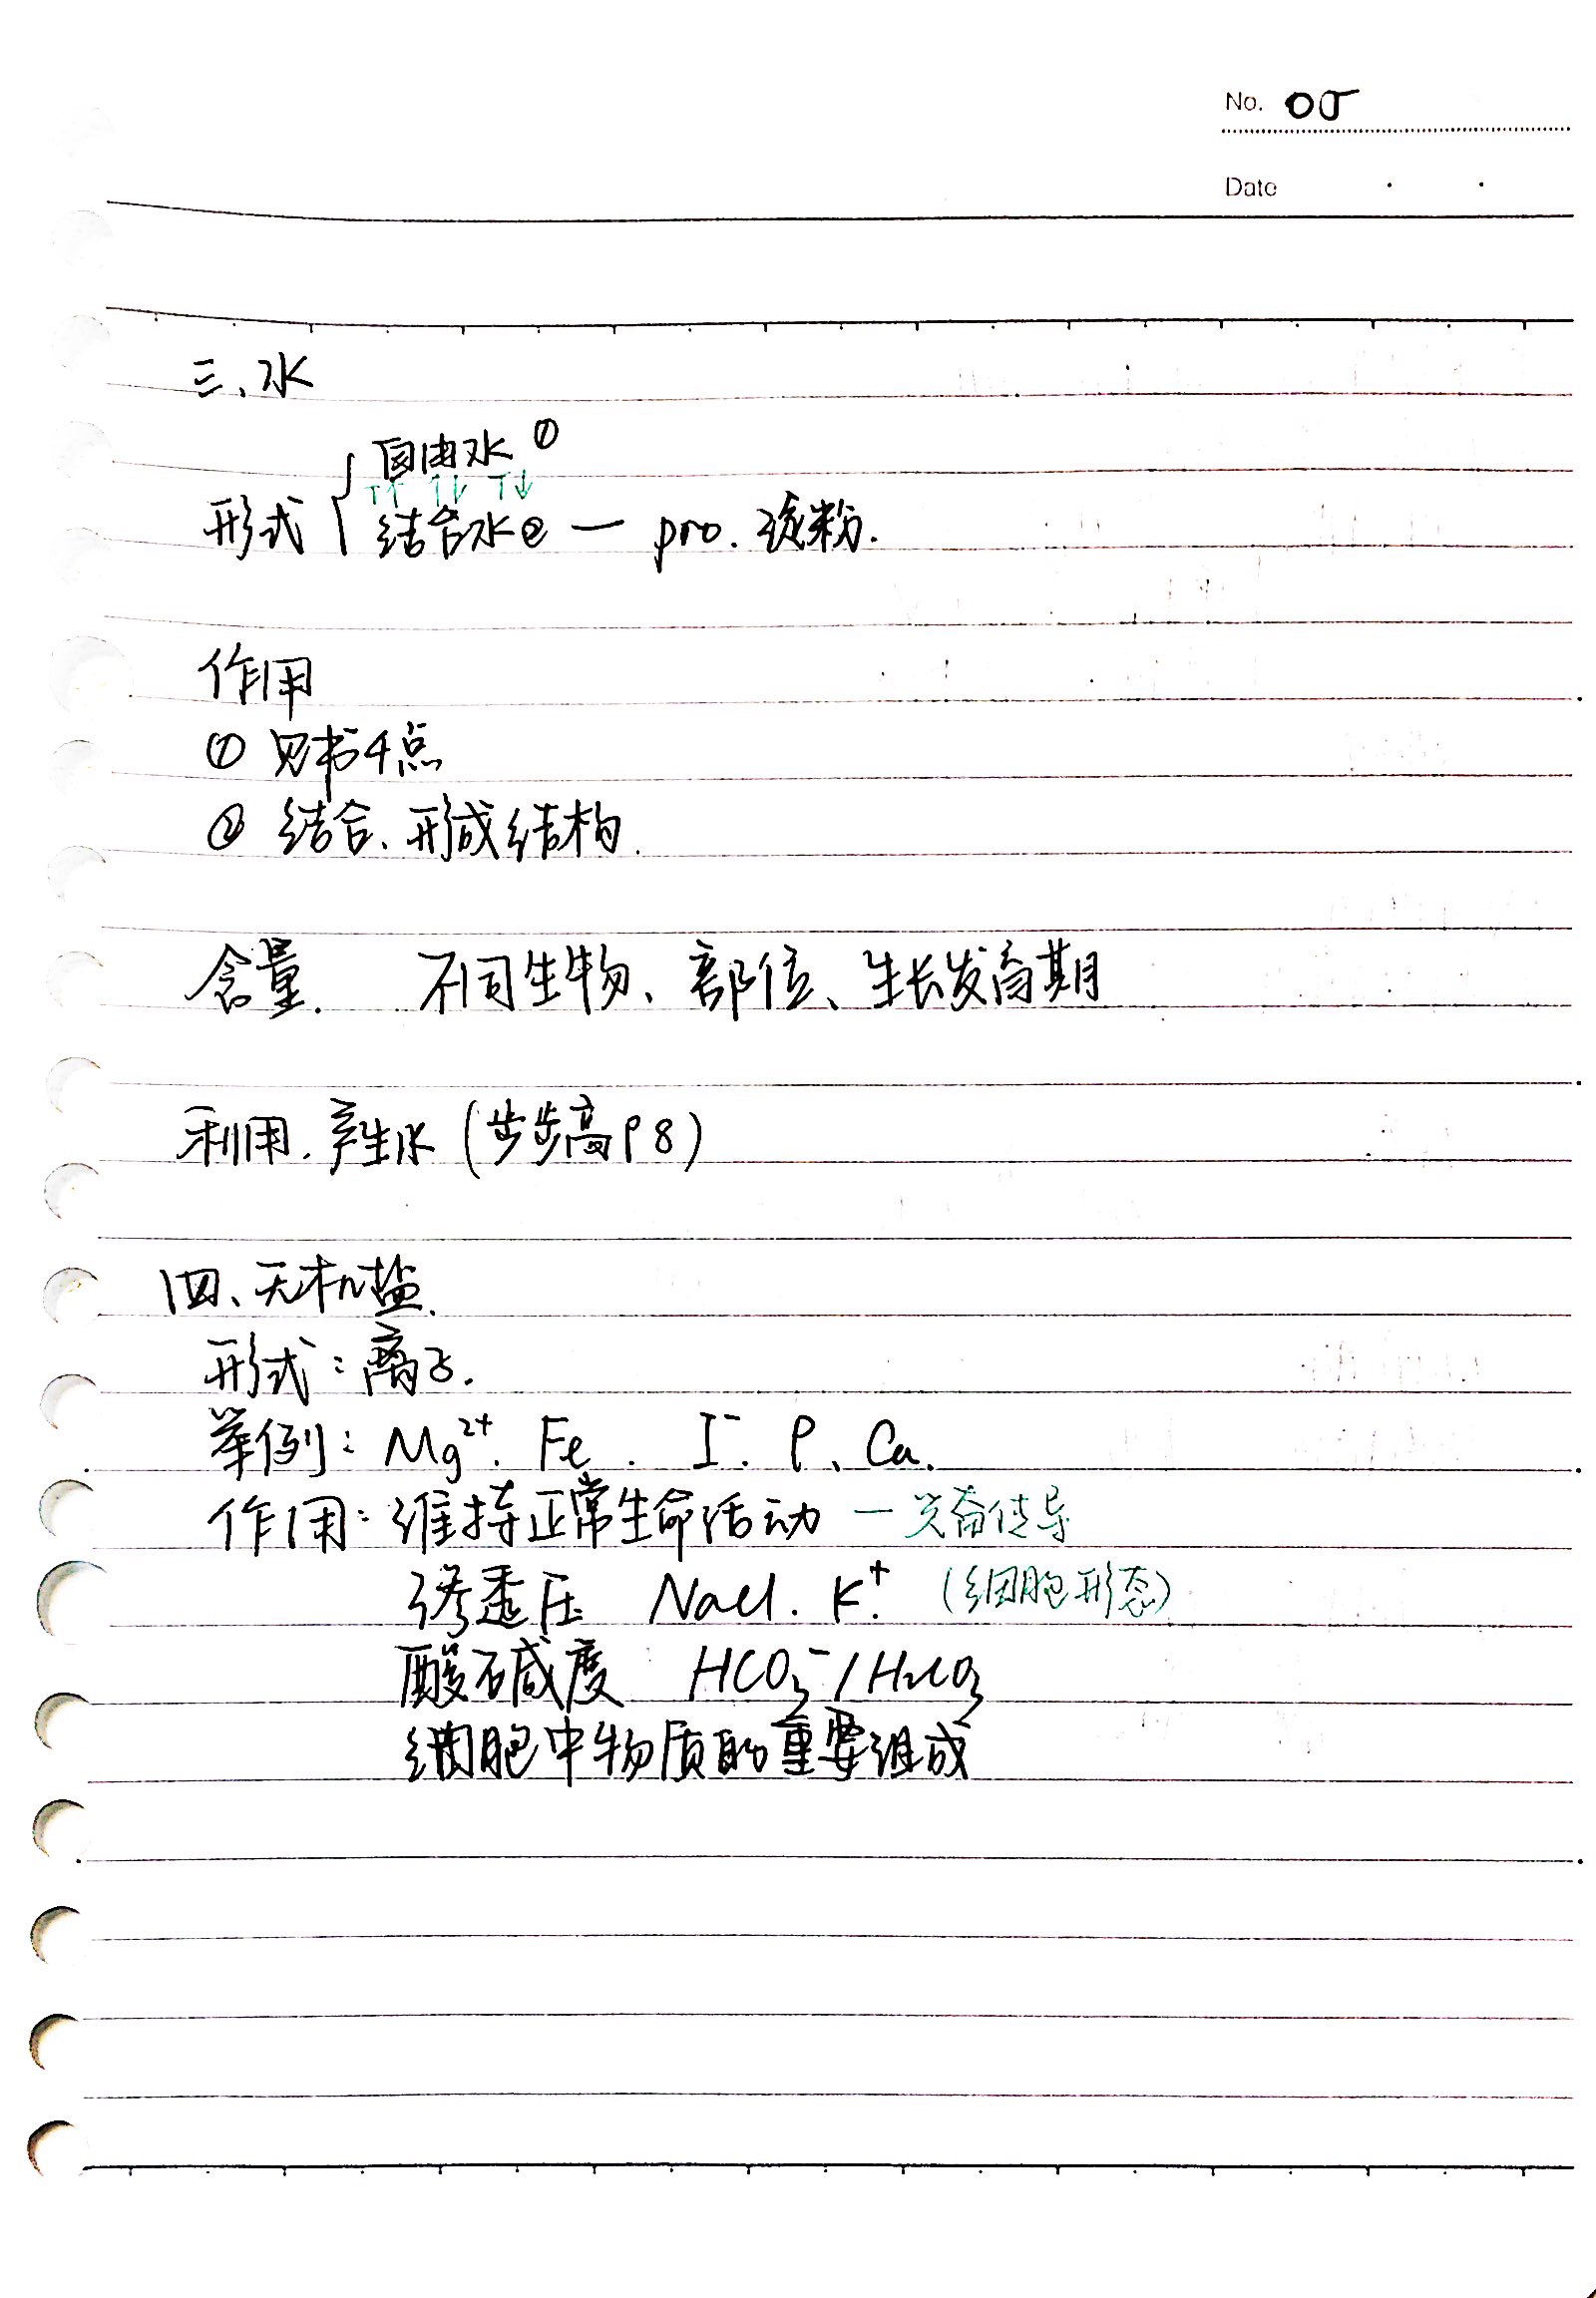 No. 05
Date
三、水
自由水 ①
T↑ ↑↓ T↓
形式 { 结合水② — pro. 淀粉.
作用
① 见书4点
② 结合、形成结构.
含量. 不同生物、部位、生长发育期
利用.产生水 (步步高P8)
四、无机盐.
形式:离子.
举例: Mg²⁺. Fe . I⁻. P、Ca.
作用: 维持正常生命活动 — 兴奋传导
渗透压 NaCl. K⁺. (细胞形态)
酸碱度 HCO₃⁻/H₂CO₃
细胞中物质的重要组成